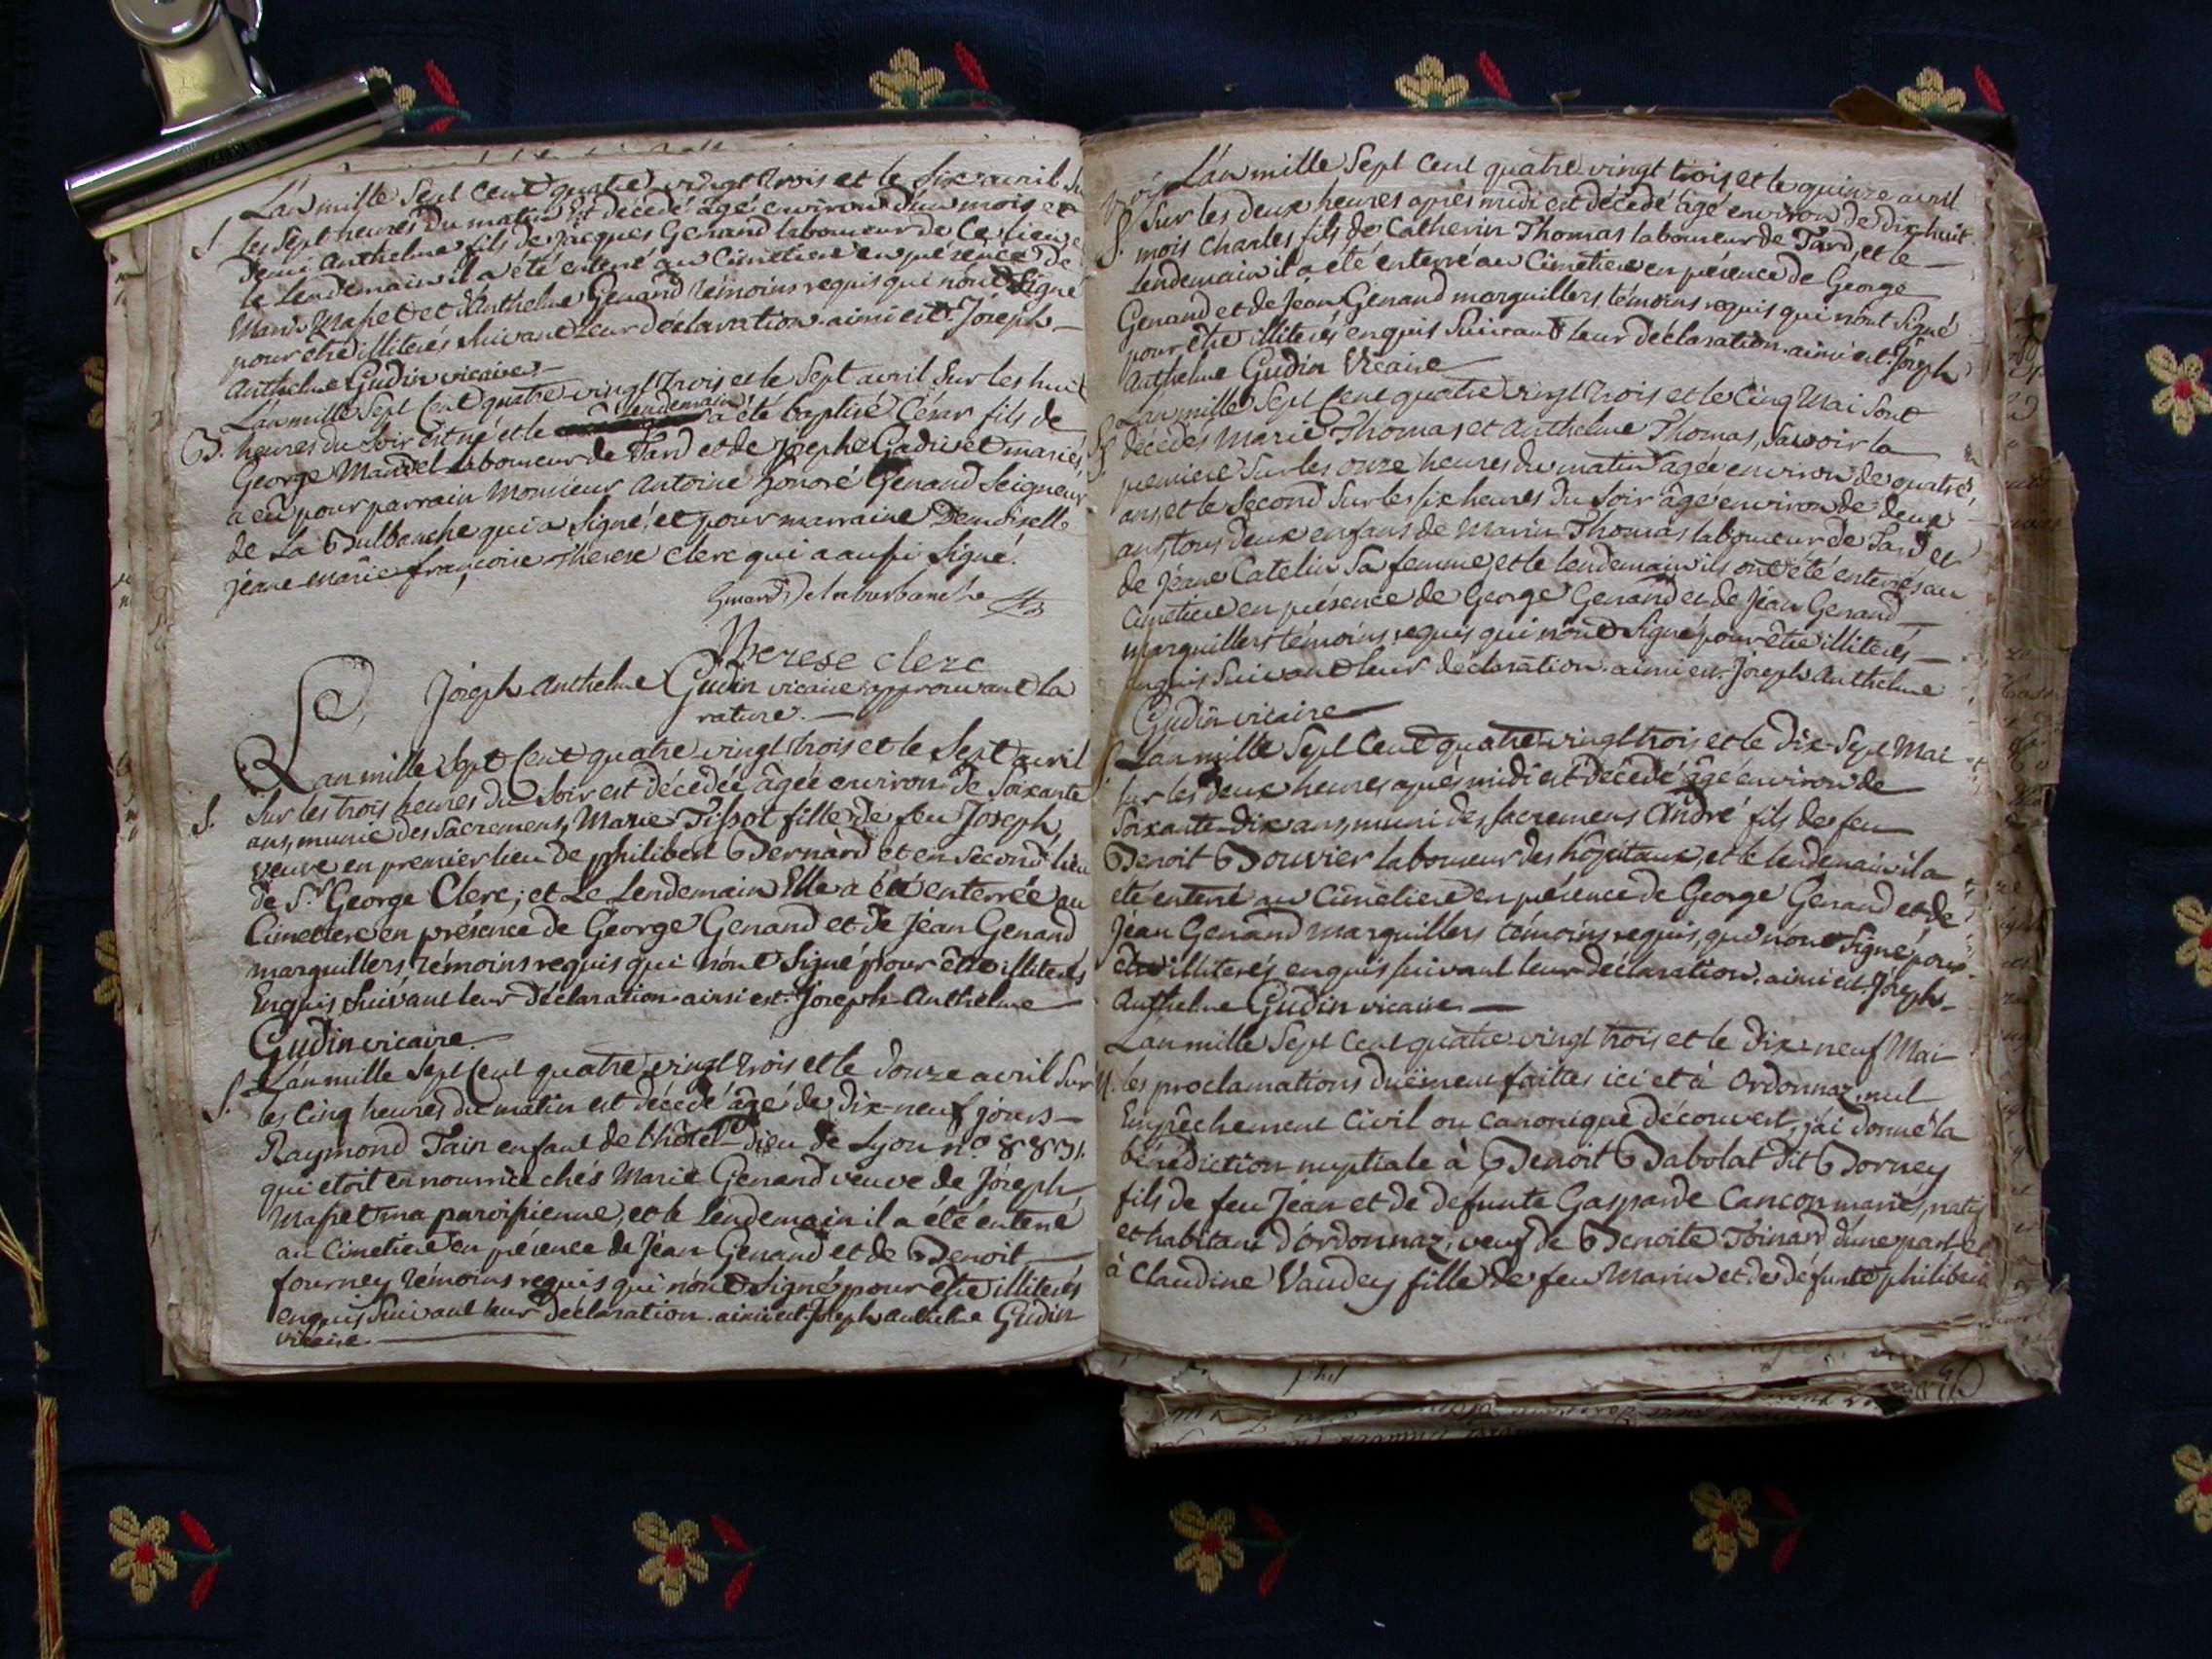 L'an mille sept cent quatre vingt trois et le six avril sur
S. les sept heures du matin est décédé âgé environ d'un mois et
demi Anthelme fils de jacques Genand laboureur de Ce lieu et
le Lendemain il a été enterré au Cimetiere en présence de
Marin Masset et d'Anthelme Genand témoins requis qui n'ont Signé
pour être illiterés suivant leur déclaration ainsi est Joseph
Anthelme Gudin vicaire
L'an mille Sept Cent quatre vingt trois et le Sept avril Sur les huit
B. heures du Soir est né et le lendemain a été baptisé César fils de
George Mandel laboureur de Tard et de Josephe Gadivet mariés,
a eû pour parrain Monsieur Antoine honoré Genand Seigneur
de La Bulbanche qui a signé, et pour marraine Demoiselle
jeane marie françoise therese Clerc qui a aussi Signé.
Genand Delaburbanche
Therese clerc
Joseph Anthelme Gudin vicaire approuvant la
rature.
L'an mille Sept Cent quatre vingt trois et le Sept avril
S. Sur les trois heures du Soir est décédée âgée environ de Soixante
ans, munie des Sacremens, Marie Tissot fille de feu Joseph,
veuve en premier lieu de philibert Bernard et en Second lieu
de Sr George Clerc; et Le Lendemain Elle a été enterrée au
Cimetiere en présence de George Genand et de Jean Genand
marguillers témoins requis qui n'ont Signé pour être illiterés
Enquis Suivant leur déclaration ainsi est Joseph Anthelme
Gudin vicaire.
L'an mille Sept Cent quatre vingt trois et le douze avril Sur
S. les Cinq heures du matin est décédé âgé de dix-neuf jours
Raymond Tain enfant de l'hôtel-dieu de Lyon no 8831.
qui etoit en nourrice chés Marie Genand veuve de Joseph
Masset ma paroissienne, et le Lendemain il a été enterré
au Cimetiere en présence de Jean Genand et de Benoit
fourney témoins requis qui n'ont Signé pour être illiterés
enquis Suivant leur déclaration. ainsi est Joseph anthelme Gudin
vicaire.
L'an mille Sept Cent quatre vingt trois, et le quinze avril
S. Sur les deux heures après midi est décédé âgé environ de dix huit
mois Charles fils de Catherin Thomas laboureur de Tard, et le
lendemain il a été enterré au Cimetiere en présence de George
Genand et de Jean Genand marguillers témoins requis qui n'ont Signé
pour être illiterés enquis Suivant leur déclaration. ainsi est Joseph
Anthelme Gudin Vicaire
L'an mille Sept Cent quatre vingt trois et le Cinq Mai Sont
décédés Marie Thomas et Anthelme Thomas, Savoir la
premiere Sur les onze heures du matin agée environ de quatre
ans, et le Second Sur les six heures du Soir âgé environ de deux
ans, tous deux enfans de Marin Thomas laboureur de Tard et
de Jeane Catelin Sa femme, et le lendemain ils ont été enterrés au
Cimetiere en présence de George Genand et de Jean Genand
marguillers témoins requis qui n'ont Signé pour être illiterés
enquis Suivant leur déclaration. ainsi est Joseph Anthelme
Gudin vicaire
L'an mille Sept Cent quatre vingt trois et le dix-Sept Mai
S. Sur les deux heures après midi est décédé âgé environ de
Soixante-dix ans, muni des Sacremens André fils de feu
Benoit Bouvier laboureur des hôpitaux, et le lendemain il a
été enterré au Cimetiere en présence de George Genand et de
Jean Genand Marguillers témoins requis, qui n'ont Signé pour
être illiterés, enquis Suivant leur déclaration. ainsi est Joseph
Anthelme Gudin vicaire
L'an mille Sept Cent quatre vingt trois et le Dix-neuf Mai
M. les proclamations duëment faittes ici et à Ordonnaz, nul
Empêchement Civil ou Canonique découvert, j'ai donné la
bénédiction nuptiale à Benoit Babolat dit Borney
fils de feu Jean et de defunte Gasparde Cancon mariés, natif
et habitant d'ordonnaz, veuf de Benoite Toinard d'une part et
à Claudine Vaudey fille de feu Marin et de défunte philiberte